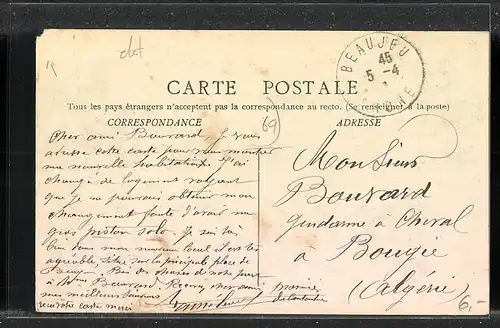 dep
BEAUJEU
45
5 -4
CARTE POSTALE
Tous les pays étrangers n'acceptent pas la correspondance au recto. (Se renseigner à la poste)
CORRESPONDANCE
69
ADRESSE
Cher ami Bouvard, Je vous
adresse cette carte pour vous montrer
ma nouvelle habitation. J'ai
changé de logement voyant
que je ne pouvais obtenir mon
changement faute d'avoir un
gros piston solo. Je suis là
bien dans mon nouveau local c'est très
agréable sur la principale place de
Bien des choses de notre part
à Mme Bouvard. Recevez cher ami
mes meilleurs
votre carte merci
Monsieur
Bouvard
Gendarme à Cheval
à
Bougie
(Algérie)
6,-